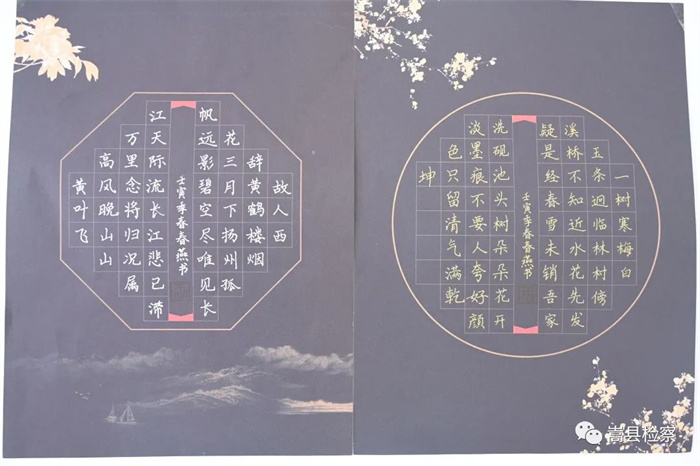 故人西
辞黄鹤楼烟
花三月下扬州孤
帆远影碧空尽唯见长
壬寅季春春燕书
江天际流长江悲已滞
万里念将归况属
高风晚山山
黄叶飞
一树寒梅白
玉条迥临林村傍
溪桥不知近水花先发
疑是经春雪未销吾家
壬寅季春春燕书
洗砚池头树朵朵花开
淡墨痕不要人夸好颜
色只留清气满乾
坤
嵩县检察